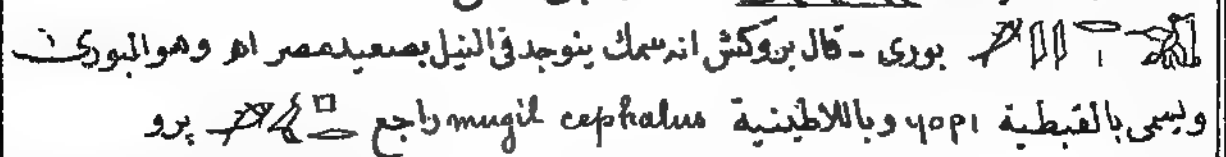 بورى - قال بروكش انه سمك يتوجد فى النيل بصعيد مصر اھ وهو البورى
ويسمى بالقبطية ϥорι وباللاطينية mugil cephalus راجع برو